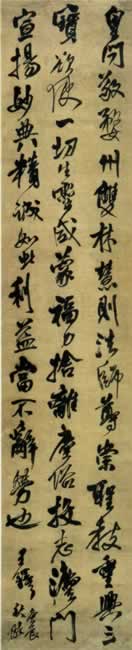 皇問敬婺州雙林慧則法師尊崇聖教重興三
寶欲使一切生靈咸蒙福力捨離塵俗投志法門
宣揚妙典精誠如此利益當不辭勞也
王鐸